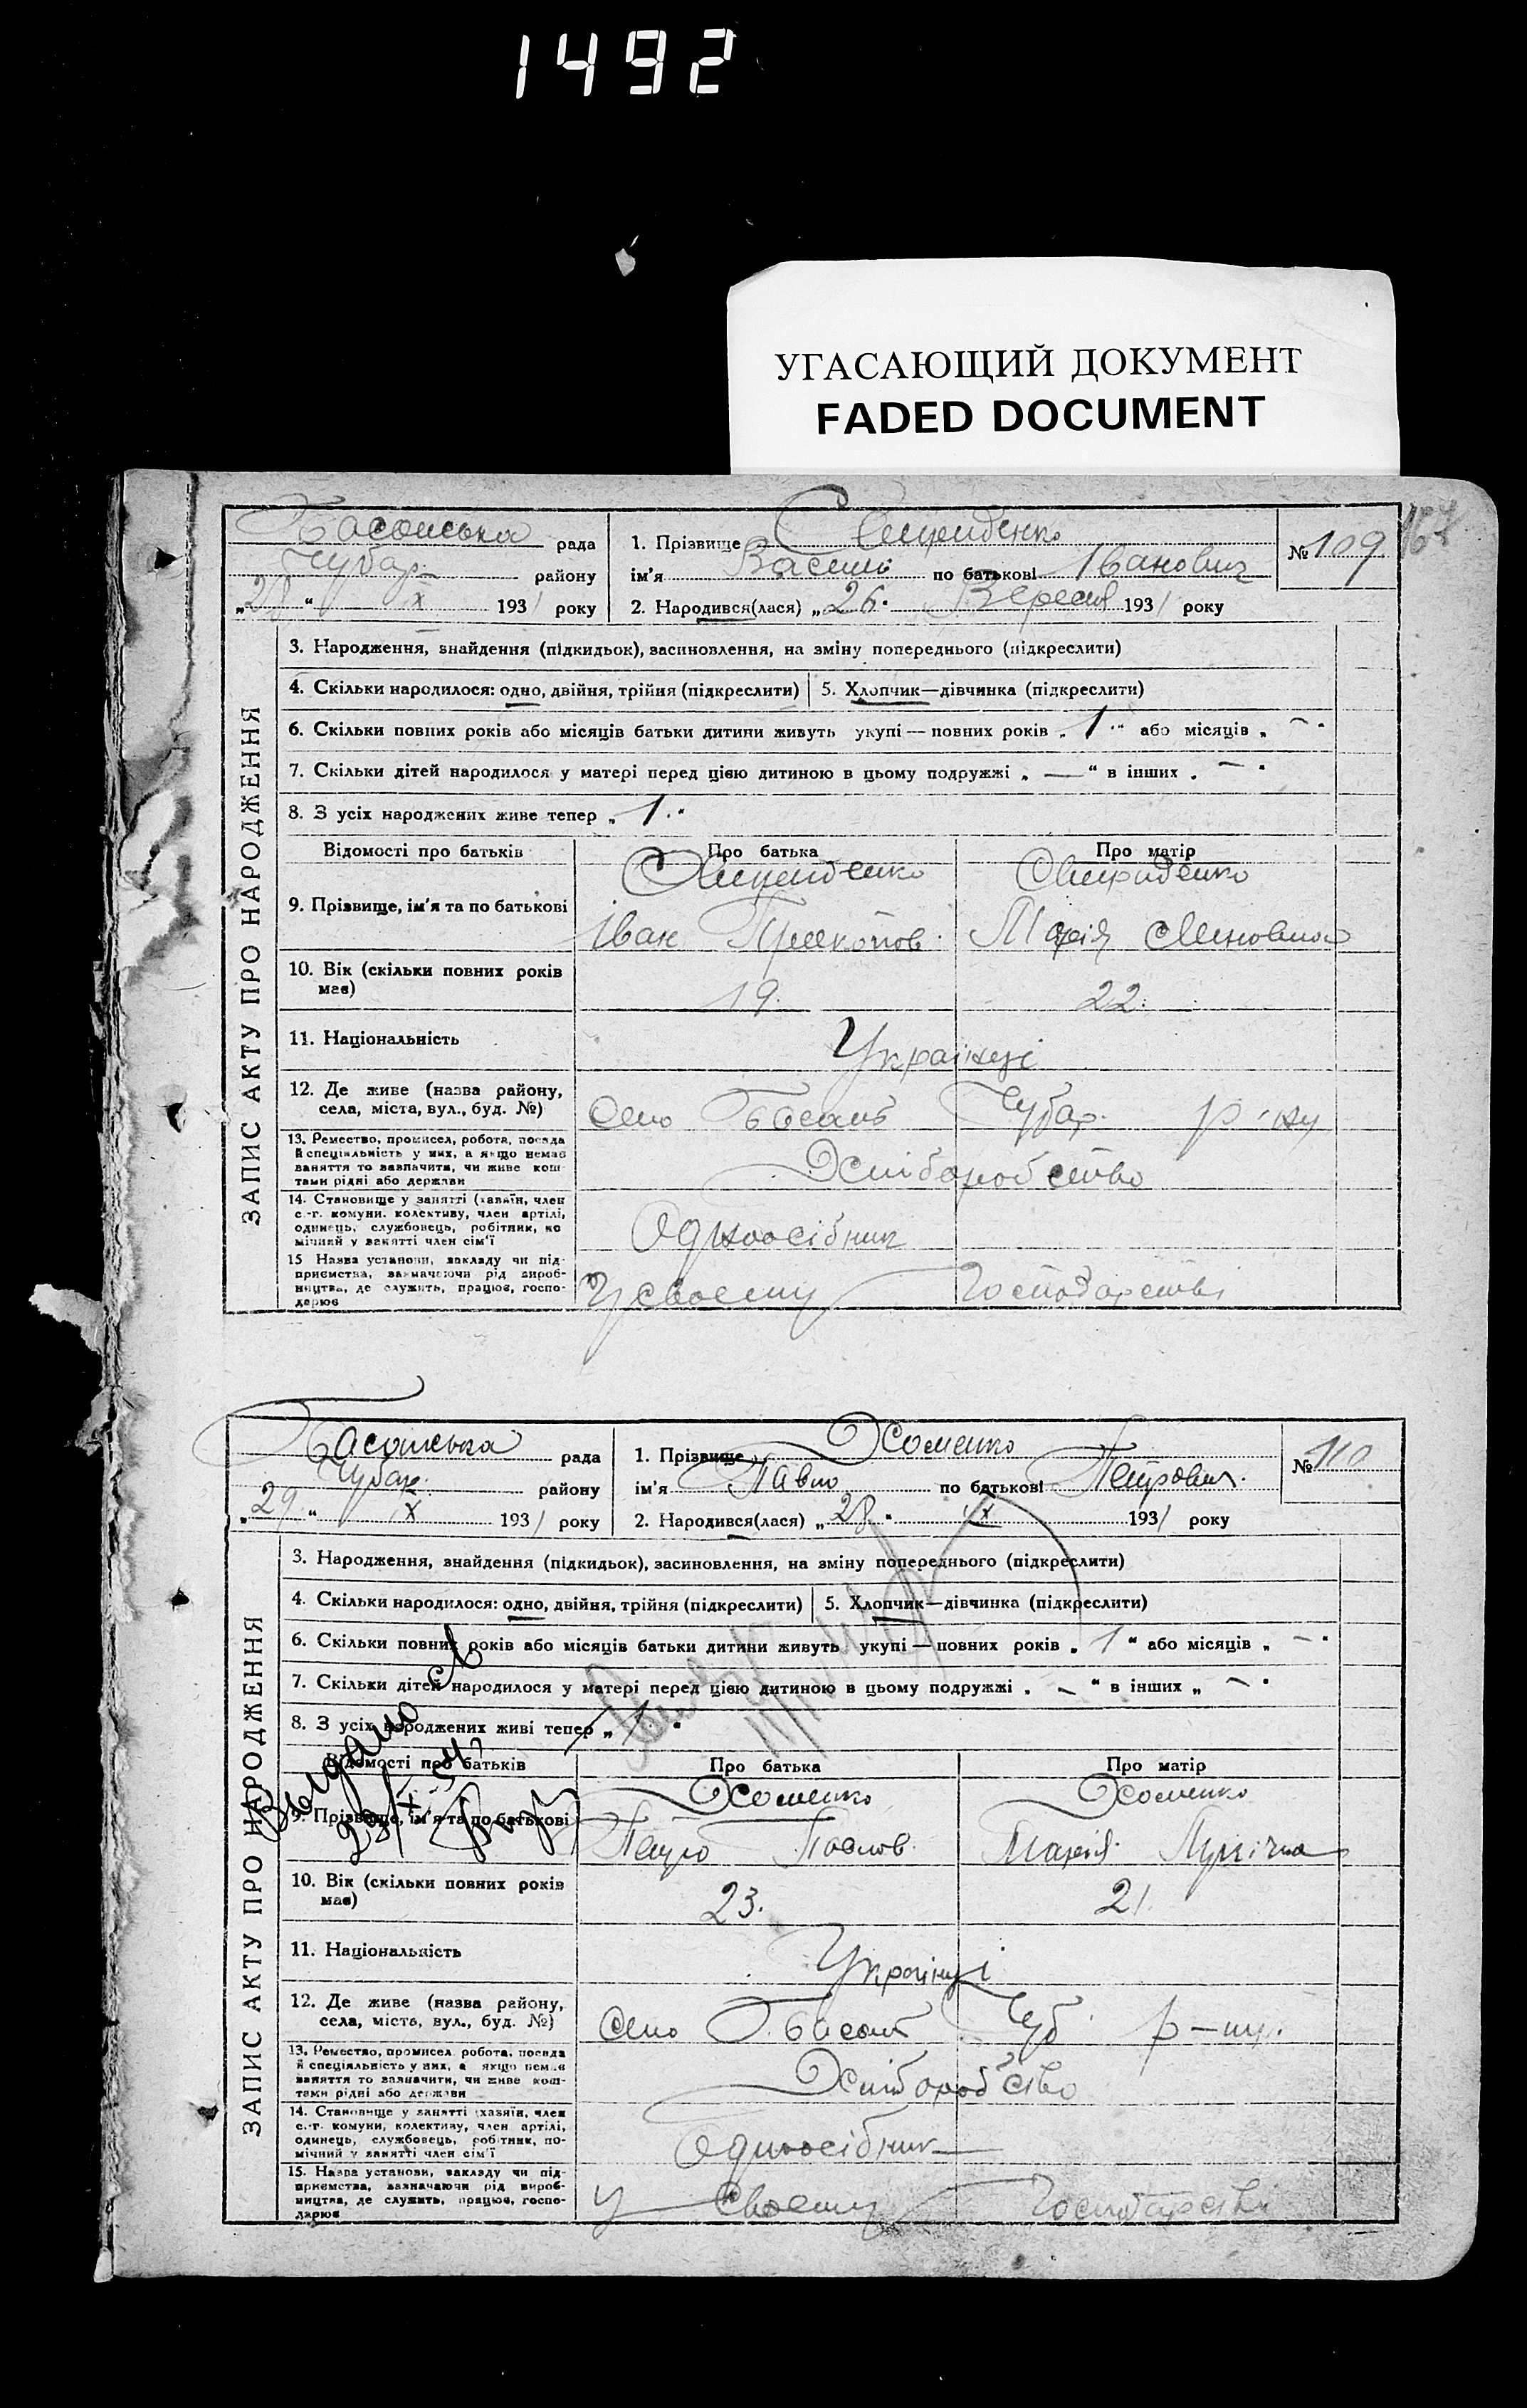 1492
УГАСАЮЩИЙ ДОКУМЕНТ
FADED DOCUMENT
167
Басанська рада
Чубар. району
„28" X 1931 року
1. Прізвище Свириденко
ім'я Василь по батькові Іванович
2. Народився(лася) „26." Вересня 1931 року
№ 109
ЗАПИС АКТУ ПРО НАРОДЖЕННЯ
3. Народження, знайдення (підкидьок), засиновлення, на зміну попереднього (підкреслити)
4. Скільки народилося: одно, двійня, трійня (підкреслити) 5. Хлопчик—дівчинка (підкреслити)
6. Скільки повних років або місяців батьки дитини живуть укупі — повних років „1" або місяців „—"
7. Скільки дітей народилося у матері перед цією дитиною в цьому подружжі „—" в інших „—"
8. З усіх народжених живе тепер „1."
Відомості про батьків Про батька Про матір
Свириденко Свириденко
9. Прізвище, ім'я та по батькові
Іван Прокопов. Марія
10. Вік (скільки повних років має) 19. 22.
11. Національність Українці
12. Де живе (назва району, села, міста, вул., буд. №) Село Басань Чубар. р-ну
13. Ремество, промисел, робота, посада й спеціяльність у них, а якщо немає заняття то зазначити, чи живе коштами рідні або держави
Хліборобство
14. Становище у занятті (хазяїн, член с.-г. комуни, колективу, член артілі, одинець, службовець, робітник, помічний у занятті член сім'ї
Одноосібник
15 Назва установи, закладу чи підприємства, зазначаючи рід виробництва, де служить, працює, господарює
У своєму Господарстві
Басанська рада
Чубар. району
„29" X 1931 року
1. Прізвище Хоменко
ім'я Павло по батькові Петрович.
2. Народився(лася) „28" IX 1931 року
№ 110
ЗАПИС АКТУ ПРО НАРОДЖЕННЯ
3. Народження, знайдення (підкидьок), засиновлення, на зміну попереднього (підкреслити)
4. Скільки народилося: одно, двійня, трійня (підкреслити) 5. Хлопчик—дівчинка (підкреслити)
6. Скільки повних років або місяців батьки дитини живуть укупі — повних років „1" або місяців „—"
7. Скільки дітей народилося у матері перед цією дитиною в цьому подружжі „—" в інших „—"
8. З усіх народжених живі тепер „1."
Выдано
Відомості про батьків Про батька Про матір
Хоменко Хоменко
9. Прізвище, ім'я та по батькові
Петро Павлов. Марія
10. Вік (скільки повних років має) 23. 21.
11. Національність Українці
12. Де живе (назва району, села, міста, вул., буд. №) Село Басань Чуб р-ну.
13. Ремество, промисел, робота, посада й спеціяльність у них, а якщо немає заняття то зазначити, чи живе коштами рідні або держави
Хліборобство
14. Становище у занятті (хазяїн, член с.-г. комуни, колективу, член артілі, одинець, службовець, робітник, помічний у занятті член сім'ї
Одноосібник
15. Назва установи, закладу чи підприємства, зазначаючи рід виробництва, де служить, працює, господарює
У своєму Господарстві